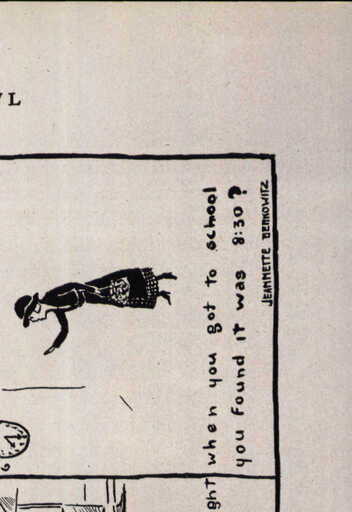 WL
ght when you got to school
you found it was 8:30?
JEANNETTE BERKOWITZ